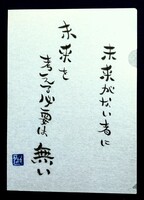 未来がない者に
未来を
考える必要は、無い